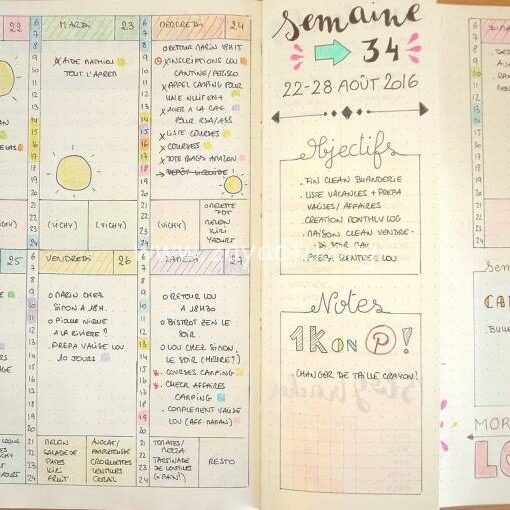 22
MARDI 23
MERCREDI 24
O AIDE MATHIEU
TOUT L'APREM
O RETOUR MARIN 18H15
X INSCRIPTIONS LOU
CANTINE / PERISCO
X APPEL CAMPING POUR
UNE NUIT EN +
X ALLER A LA CAF
POUR RSA/ABS
X LISTE COURSES
X COURSES
X TOTE BAGS AMAZON
(VICHY)
(VICHY)
(VICHY)
(VICHY)
OMELETTE
PDT
MELON
KIRI
YAOURT
25
VENDREDI 26
SAMEDI 27
O MARIN CHEZ
SIMON A 18H.
O PIQUE NIQUE
A LA RIVIERE ?
. PREPA VALISE LOU
10 JOURS
O RETOUR LOU
A 18H30
O BISTROT ZEN LE
SOIR
O LOU CHEZ SIMON
LE SOIR (HEURE?)
X. COURSES CAMPING
X. CHECK AFFAIRES
CAMPING
. COMPLEMENT VALISE
LOU (AFF. MAMAN)
MELON
SALADE DE
PATES
KIRI
FRUIT
AVOCAT/
PAMPLEMOUSSE
CROQUETTES
LENTILLES
CORAIL
TOMATES/
MOZZA
TARTINADE
DE LENTILLES
(+ PAIN!)
RESTO
Semaine
34
22-28 AOÛT 2016
Objectifs
. FIN CLEAN BUANDERIE
. LISTE VACANCES + PREPA
VALISES / AFFAIRES
. CREATION MONTHLY LOG
. MAISON CLEAN VENDRE-
DI SOIR MAX
. PREPA RENTRÉE LOU
Notes
1K ON P !
. CHANGER DE TAILLE CRAYON!